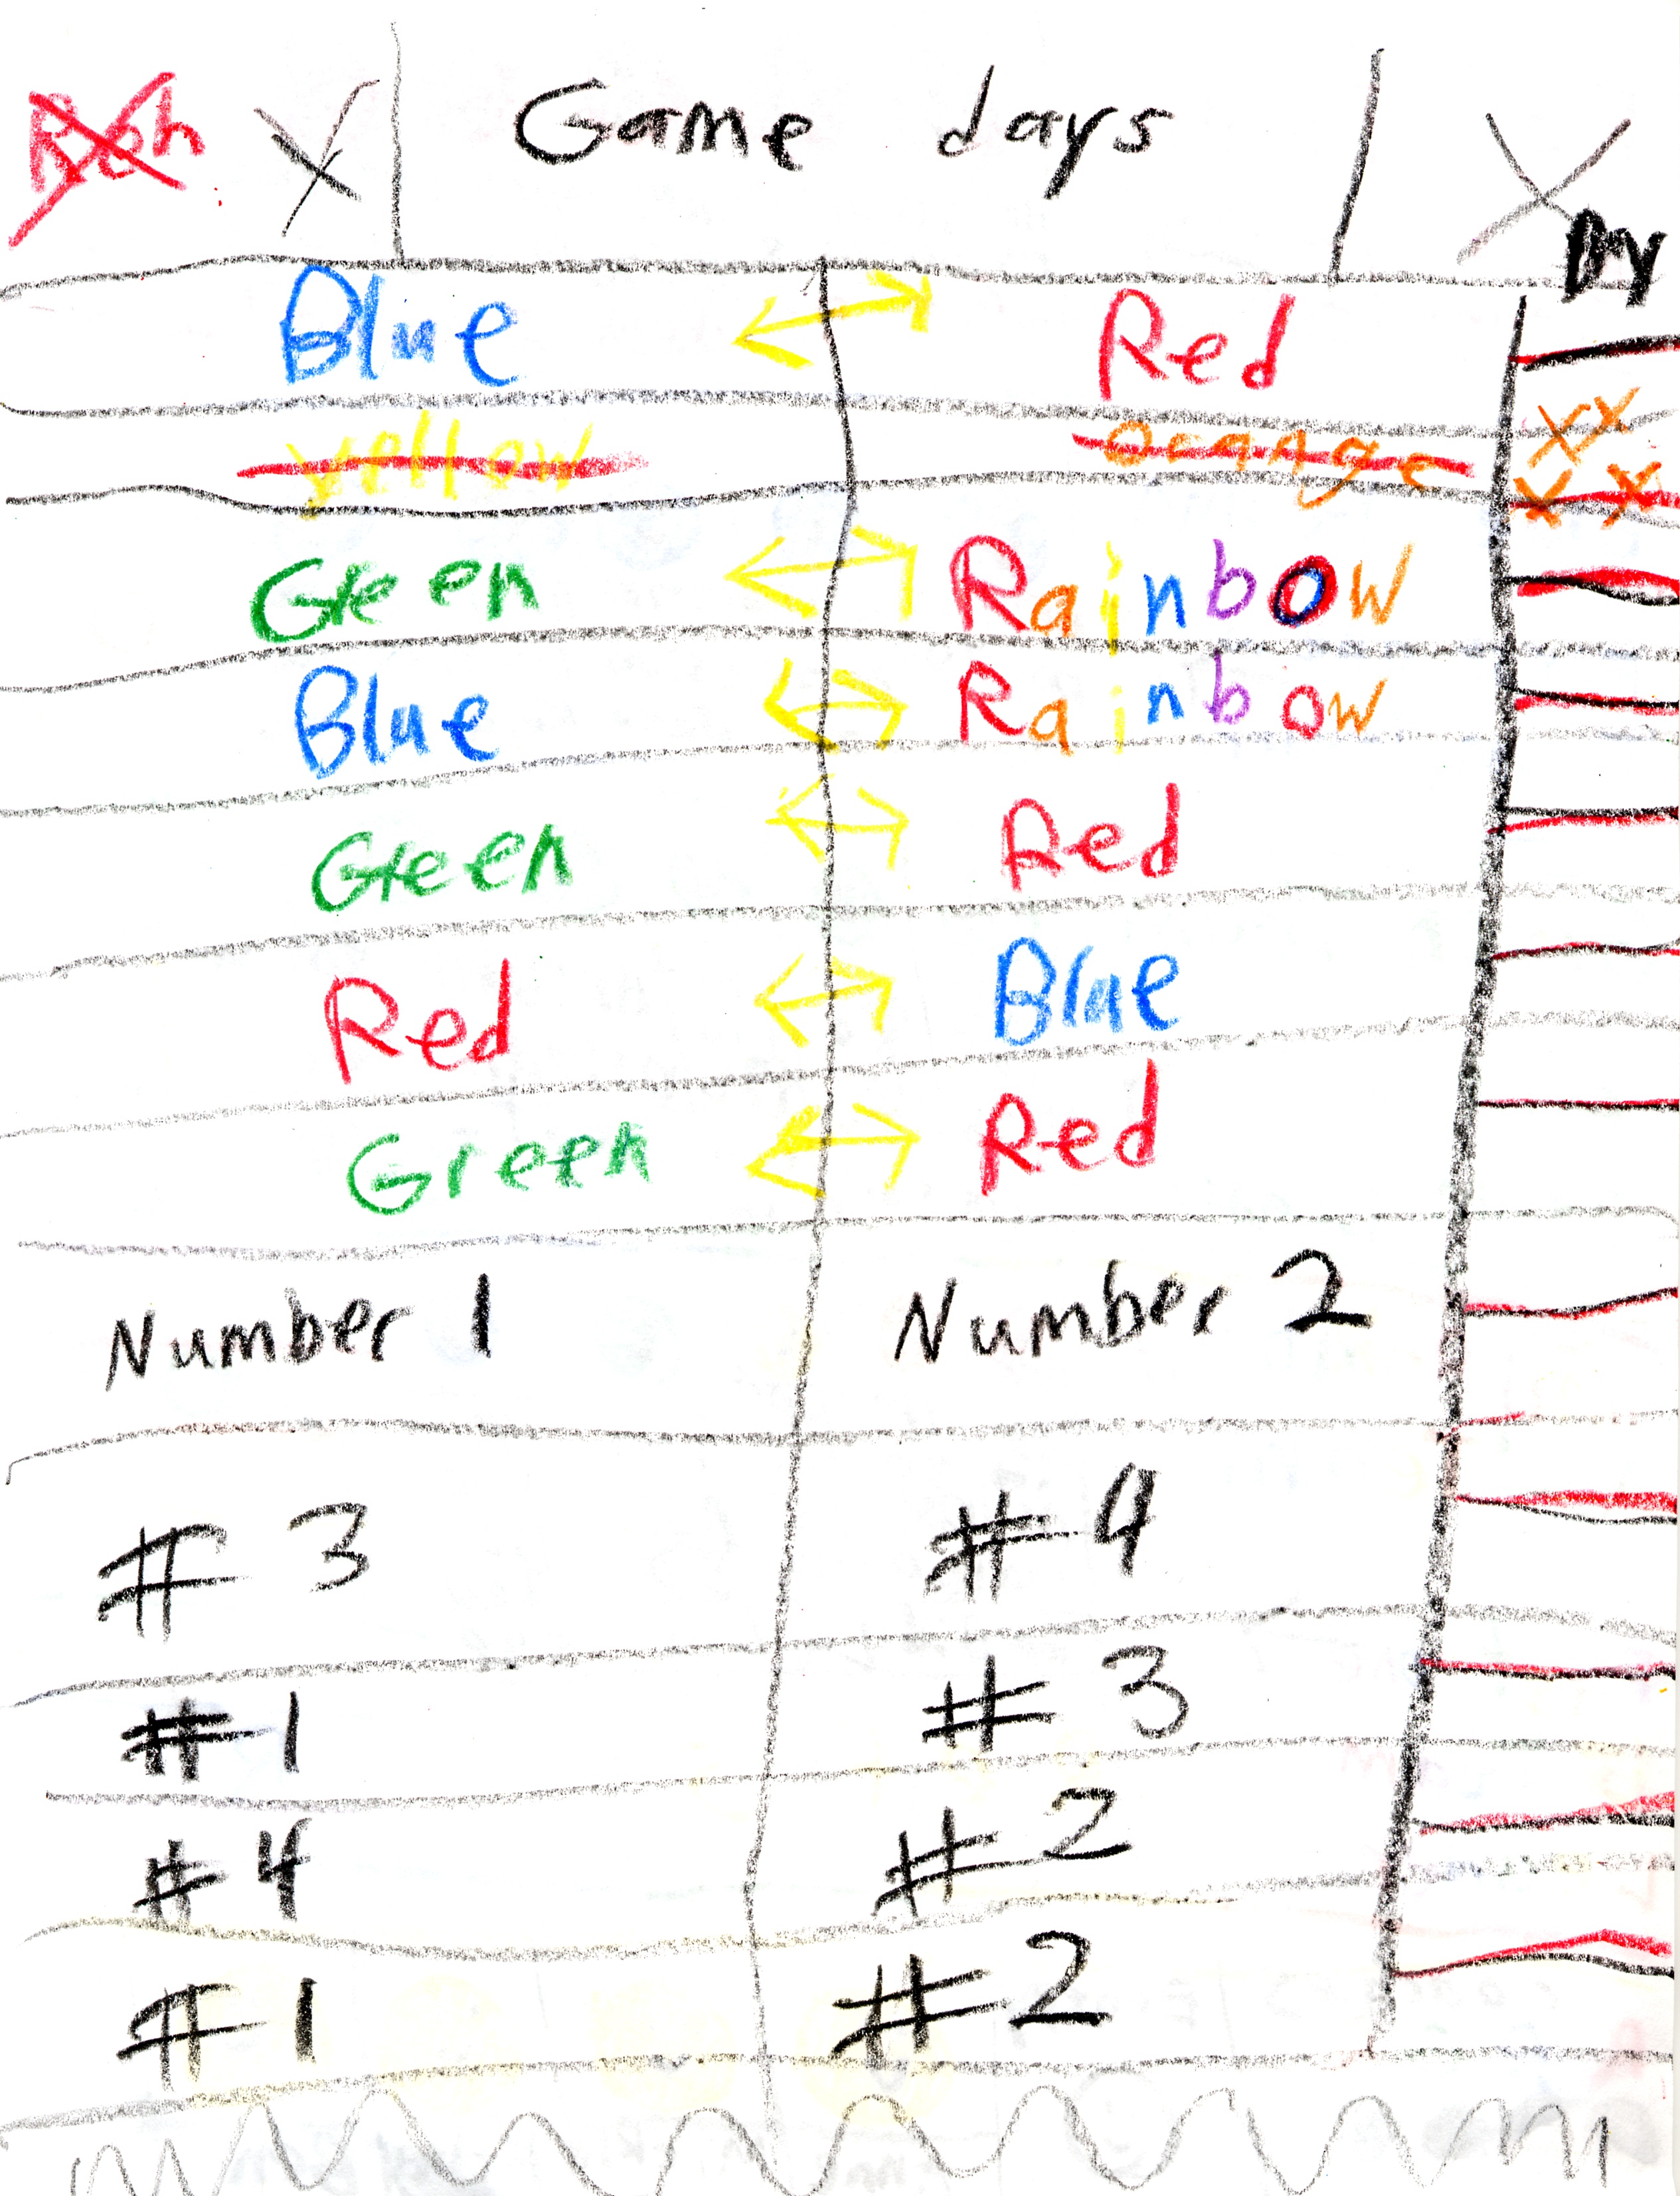 Game days
Blue Red
Yellow Orange
Green Rainbow
Blue Rainbow
Green Red
Red Blue
Green Red
Number 1 Number 2
# 3 # 4
# 1 # 3
# 4 # 2
# 1 # 2